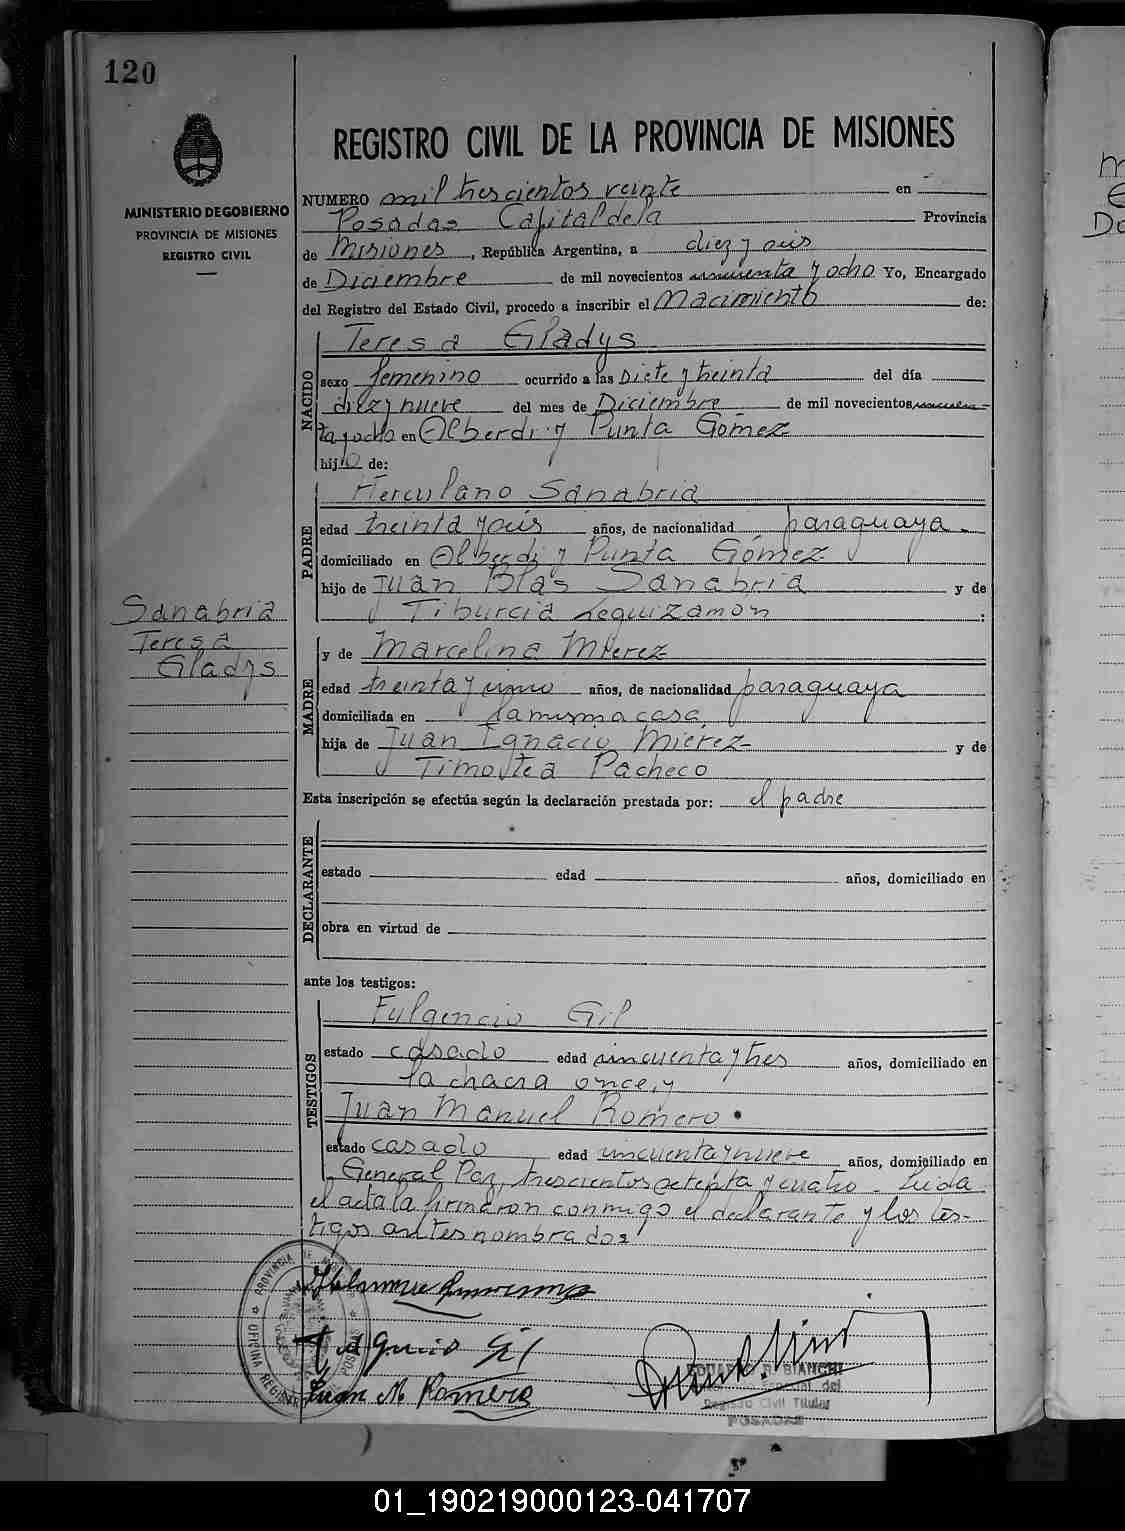 120
REGISTRO CIVIL DE LA PROVINCIA DE MISIONES
MINISTERIO DE GOBIERNO
PROVINCIA DE MISIONES
REGISTRO CIVIL
NUMERO mil trescientos veinte en
Posadas Capital de la Provincia
de Misiones, República Argentina, a diez y seis
de Diciembre de mil novecientos cincuenta y ocho Yo, Encargado
del Registro del Estado Civil, procedo a inscribir el Nacimiento de:
NACIDO
Teresa Gladys
sexo femenino ocurrido a las Siete y treinta del día
diez y nueve del mes de Diciembre de mil novecientos cincuen-
ta y ocho en Alberdi y Punta Gómez
hija de:
PADRE
Herculano Sanabria
edad treinta y seis años, de nacionalidad paraguaya
domiciliado en Alberdi y Punta Gómez
hijo de Juan Blas Sanabria y de
Tiburcia Leguizamón :
Sanabria
Teresa
Gladys
MADRE
y de Marcelina Mierez
edad treinta y uno años, de nacionalidad paraguaya
domiciliada en la misma casa,
hija de Juan Ignacio Mierez y de
Timotea Pacheco
Esta inscripción se efectúa según la declaración prestada por: el padre
DECLARANTE
estado edad años, domiciliado en
obra en virtud de
ante los testigos:
TESTIGOS
Fulgencio Gil
estado casado edad cincuenta y tres años, domiciliado en
la chacra once, y
Juan Manuel Romero
estado casado edad cincuenta y nueve años, domiciliado en
General Paz, trescientos setenta y cuatro - Leida
el acta la firmaron conmigo el declarante y los tes-
tigos antes nombrados
Gil
Juan M Romero
EDUARDO R. BIANCHI
Registro Civil Titular
POSADAS
01_190219000123-041707